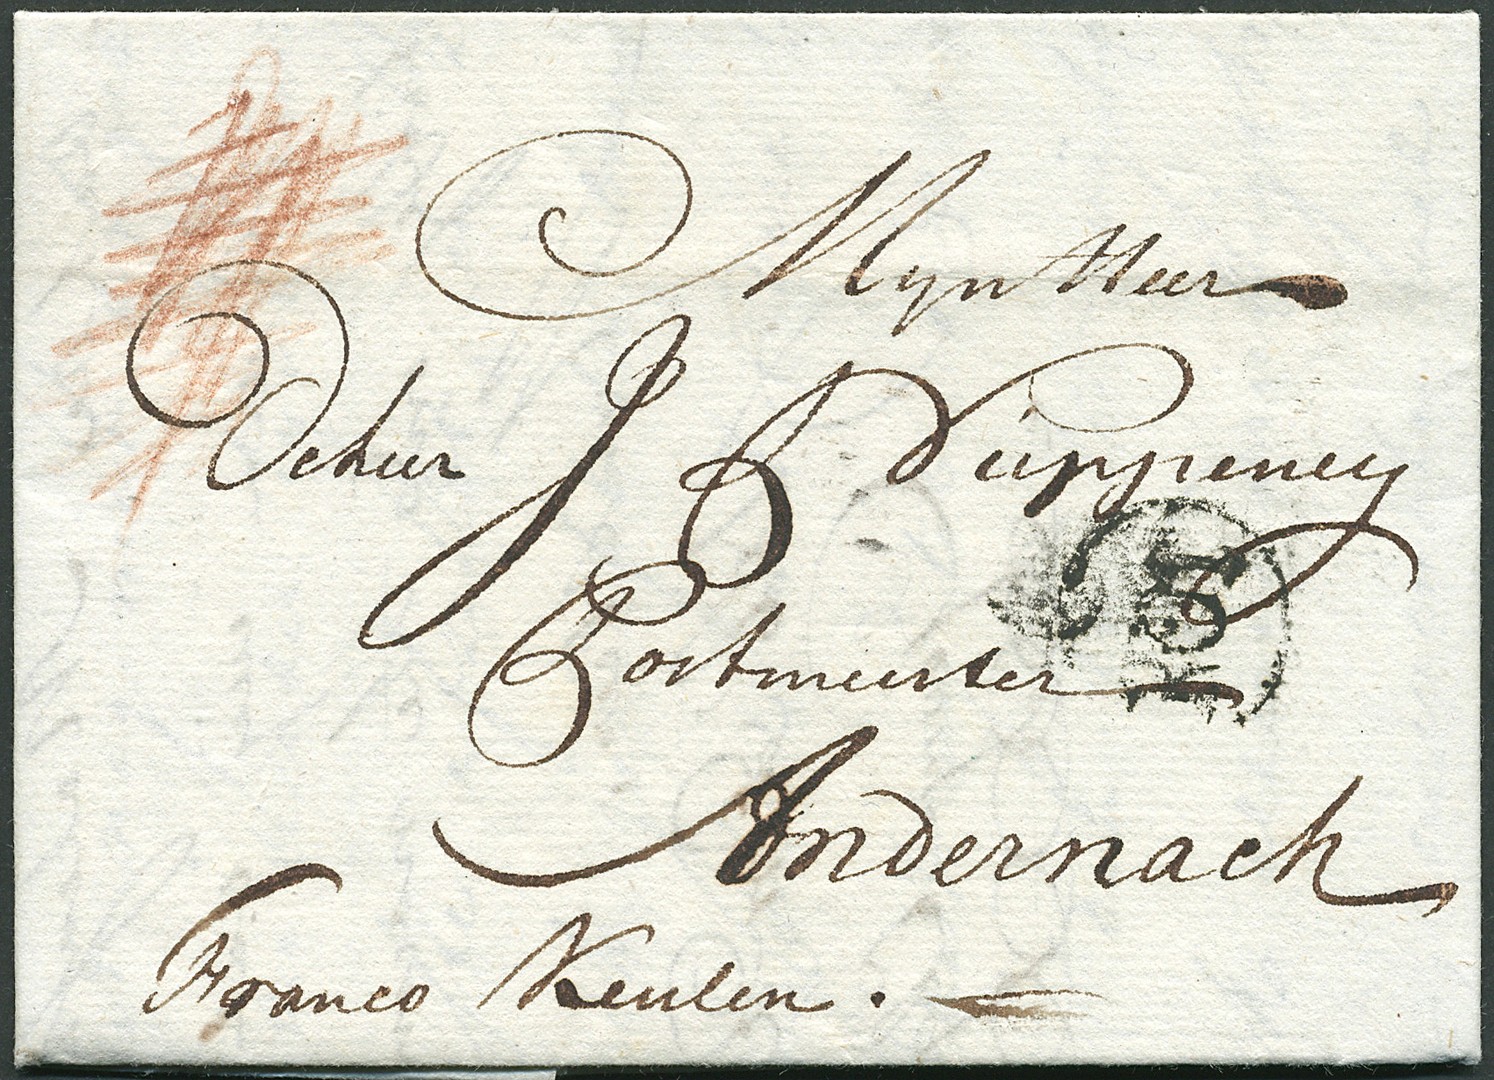 Myn Heer
De heer J P Düppeney
Postmeester
Andernach
Franco Keulen.